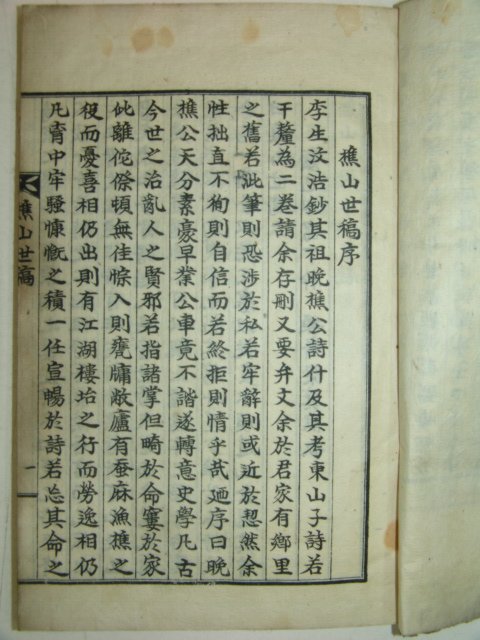 樵山世稿序
李生汶浩鈔其祖晚樵公詩什及其考東山子詩若
干釐為二卷請余存刪又要弁文余於君家有鄉里
之舊若泚筆則恐涉於私若牢辭則或近於恝然余
性拙直不徇則自信而若終拒則情乎哉廼序曰晚
樵公天分素豪早業公車竟不諧遂轉意史學凡古
今世之治亂人之賢邪若指諸掌但畸於命窶於家
仳離侘傺頓無佳悰入則甕牖敝廬有蚕麻漁樵之
役而憂喜相仍出則有江湖樓坮之行而勞逸相仍
凡胷中牢騷慷慨之積一任宣暢於詩若忘其命之
樵山世稿
一